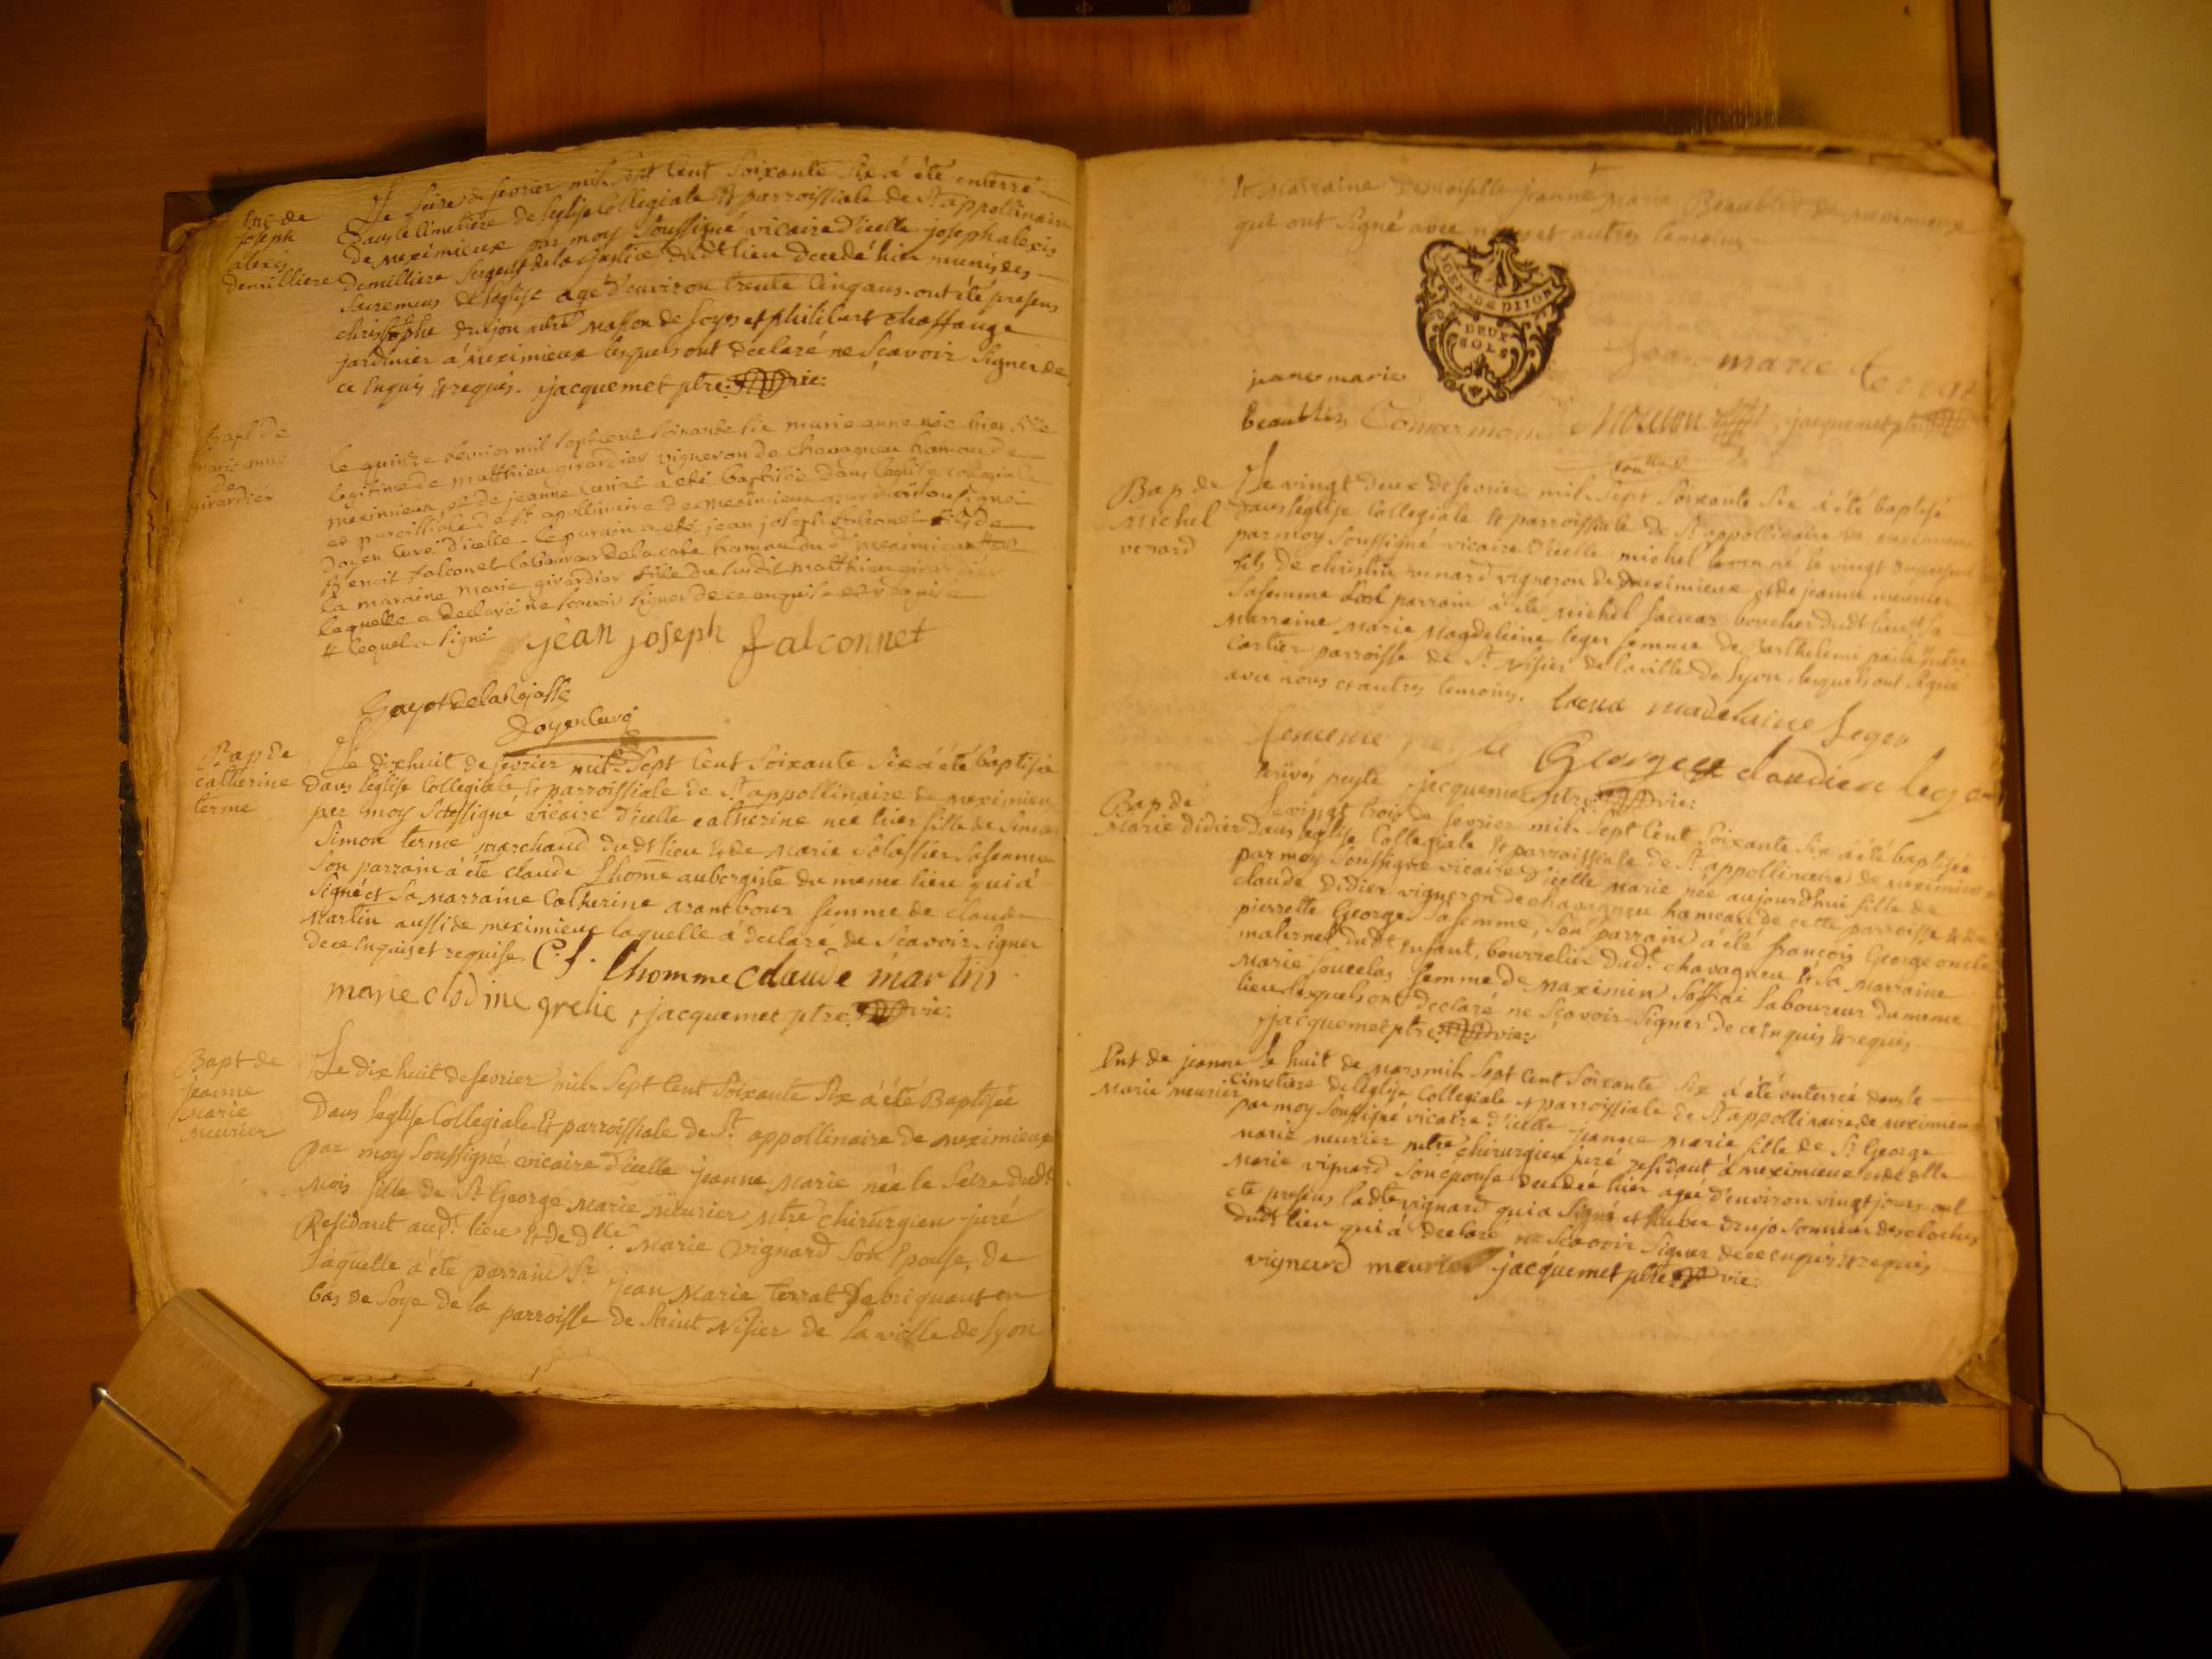 Ent de
joseph
alexis
demilliere
Le seize de fevrier mil sept cent soixante six á été enterré
dans le cimetière de l'eglise Collegiale et parroissiale de St appollinaire
de meximieux par moy soussigné vicaire d'icelle joseph alexis
demilliere sergent de la justice dudt lieu decedé hier munis des
sacremens de l'eglise agé d'environ trente cinq ans. ont été presens
christophe drujon mtre masson de et philibert chaffange
jardinier á meximieux lesquels ont declaré ne sçavoir signer de
ce enquis et requis. jacquemet ptre: vic:
Bapt de
marie anne
de
girardier
le quinze fevrier mil sept cent soixante six marie anne née hier fille
legitime de matthieu girardier vigneron de chavagneu hamau de
meximieux, et de jeanne a eté baptisée dans l'eglise collegiale
et paroissiale de St apollinaire de meximieux par moi soussigné
doyen curé d'icelle. le parain a eté jean joseph falconet fils de
benoit falconet laboureur de la cote hamau du d meximieux #
la maraine marie girardier fille du susdit matthieu girardier
laquelle a declaré ne sçavoir signer de ce enquise et requise
# lequel a signé jean joseph falconnet
Gayot de la Rejasse
Doyen Curé
Bap de
catherine
terme
Le dixhuit de fevrier mil sept cent soixante six á été baptisée
dans l'eglise Collegiale et parroissiale de St appollinaire de meximieux
par moy soussigné vicaire d'icelle catherine née hier fille de
Simon terme marchand dudt lieu et de Marie sa femme
son parrain á été claude Lhome aubergiste du meme lieu qui á
signé et sa marraine Catherine arantbour femme de claude
Martin aussi de meximieux laquelle á declaré de sçavoir signer
de ce enquis et requise. C. f. Lhomme claude martin
marie clodine grelie, jacquemet ptre vic:
Bapt de
jeanne
Marie
Meurier
Le dixhuit de fevrier mil sept cent soixante six á été Baptisée
dans l'eglise Collegiale et parroissiale de St. appollinaire de meximieux
par moy soussigné vicaire d'icelle jeanne Marie née le seize dudt
mois fille de Sr George Marie Meurier mtre chirurgien juré
Residant aud. lieu et de Dlle Marie Vignard son Epouse, de
laquelle á été parrain Sr jean Marie terrat fabriquant en
bas de soye de la parroisse de saint Nisier de la ville de Lyon
et Marraine demoiselle jeanne Marie Beaublez de meximieux
qui ont signé avec nous et autres temoins
GEN. DE DIJON
DEUX
SOLS
jean marie terrat
jeane marie
beaublez Comarmond jacquemet ptre
Bap de
Michel
venard
Le vingt deux de fevrier mil sept cent soixante six á été baptisé
dans l'église Collegiale et parroissiale de St appollinaire de meximieux
par moy soussigné vicaire d'icelle michel né le vingt
fils de venard vigneron de meximieux et de jeanne meunier
sa femme son parrain á été Michel Lacua boucher dudt lieu et sa
marraine Marie Magdeleine leger femme de Barthelemi
Cartier parroisse de St Nisier de la ville de Lyon, lesquels ont signé
avec nous et autres temoins. Lacua madelaine Leger
femme George claudien leger
jacquemet ptre vic:
Bap de
Marie didier
Le vingt trois de fevrier mil sept cent soixante six á été baptisée
dans l'eglise Collegiale et parroissiale de St appollinaire de meximieux
par moy soussigné vicaire d'icelle Marie née aujourdhui fille de
claude Didier vigneron de chavagneu hameau de cette parroisse et de
pierrette George sa femme, son parrain á été françois George oncle
maternel dudt enfant, bourrelier dudt. chavagneu et sa marraine
Marie femme de Maximin laboureur du meme
lieu lesquels ont declaré ne sçavoir signer de ce enquis et requis
jacquemet ptre: vic:
Ent de jeanne
Marie meurier
Le huit de mars mil sept cent soixante six á été enterrée dans le
cimetiere de l'église Collegiale et parroissiale de St appollinaire de meximieux
par moy soussigné vicaire d'icelle jeanne marie fille de Sr George
marie meurier mtre chirurgien juré residant á meximieux et de Dlle
Marie vignard son epouse decedée hier ágée d'environ vingt jours ont
été presens ladte vignard qui a signé et drujo sonneur des cloches
dudt lieu qui á declaré ne sçavoir signer de ce enquis et requis
vignard meurier jacquemet ptre vic: